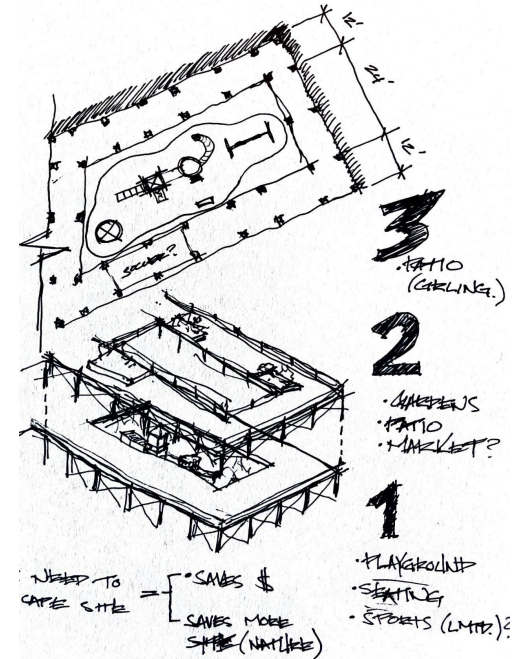 12'
24'
12'
3
·PATIO
2
·GARDENS
·PATIO
·MARKET?
1
·PLAYGROUND
·SEATING
·SPORTS (LMTD.)?
NEED TO
= ·SAVES $
SAVES MORE
SITE (NATURE)